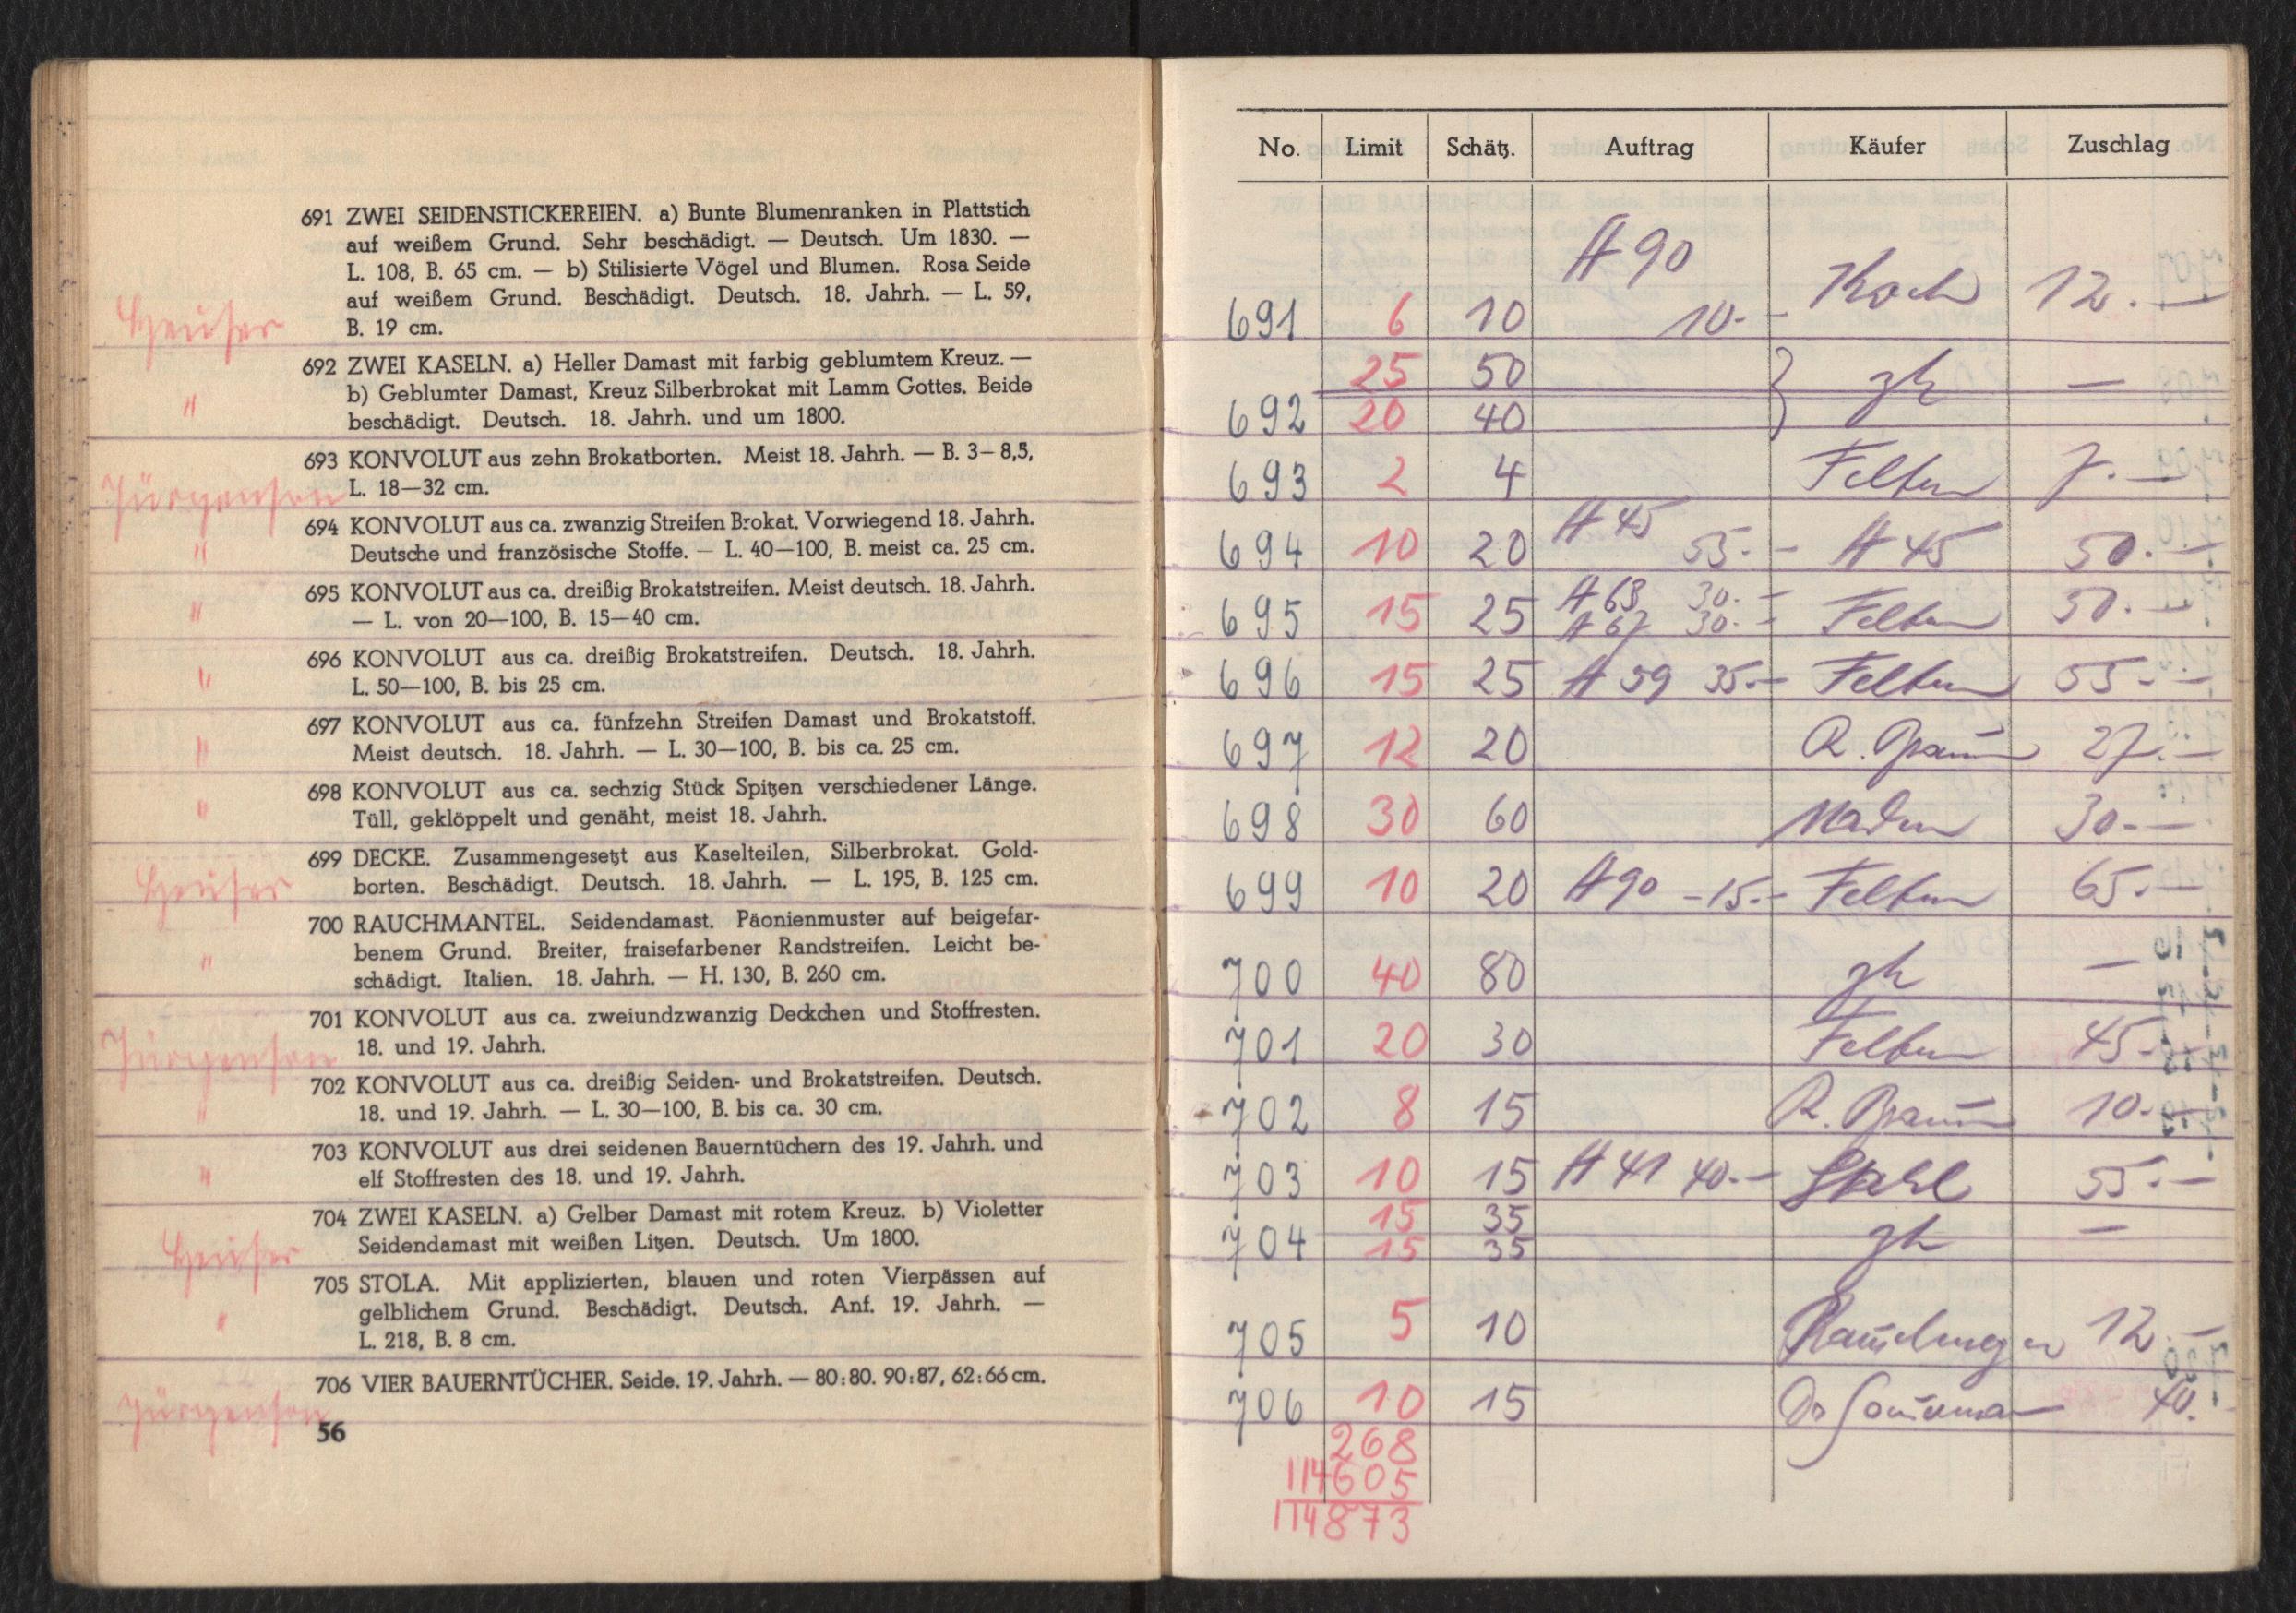 691 ZWEI SEIDENSTICKEREIEN. a) Bunte Blumenranken in Plattstich
auf weißem Grund. Sehr beschädigt. — Deutsch. Um 1830. —
L. 108, B. 65 cm. — b) Stilisierte Vögel und Blumen. Rosa Seide
auf weißem Grund. Beschädigt. Deutsch. 18. Jahrh. — L. 59,
Heuser B. 19 cm.
692 ZWEI KASELN. a) Heller Damast mit farbig geblumtem Kreuz. —
" b) Geblumter Damast, Kreuz Silberbrokat mit Lamm Gottes. Beide
beschädigt. Deutsch. 18. Jahrh. und um 1800.
693 KONVOLUT aus zehn Brokatborten. Meist 18. Jahrh. — B. 3–8,5,
Jürgensen L. 18—32 cm.
694 KONVOLUT aus ca. zwanzig Streifen Brokat. Vorwiegend 18. Jahrh.
" Deutsche und französische Stoffe. — L. 40—100, B. meist ca. 25 cm.
695 KONVOLUT aus ca. dreißig Brokatstreifen. Meist deutsch. 18. Jahrh.
" — L. von 20—100, B. 15—40 cm.
696 KONVOLUT aus ca. dreißig Brokatstreifen. Deutsch. 18. Jahrh.
" L. 50—100, B. bis 25 cm.
697 KONVOLUT aus ca. fünfzehn Streifen Damast und Brokatstoff.
" Meist deutsch. 18. Jahrh. — L. 30—100, B. bis ca. 25 cm.
698 KONVOLUT aus ca. sechzig Stück Spitzen verschiedener Länge.
" Tüll, geklöppelt und genäht, meist 18. Jahrh.
699 DECKE. Zusammengesetzt aus Kaselteilen, Silberbrokat. Gold-
Heuser borten. Beschädigt. Deutsch. 18. Jahrh. — L. 195, B. 125 cm.
700 RAUCHMANTEL. Seidendamast. Päonienmuster auf beigefar-
benem Grund. Breiter, fraisefarbener Randstreifen. Leicht be-
" schädigt. Italien. 18. Jahrh. — H. 130, B. 260 cm.
701 KONVOLUT aus ca. zweiundzwanzig Deckchen und Stoffresten.
Jürgensen 18. und 19. Jahrh.
702 KONVOLUT aus ca. dreißig Seiden- und Brokatstreifen. Deutsch.
" 18. und 19. Jahrh. — L. 30—100, B. bis ca. 30 cm.
703 KONVOLUT aus drei seidenen Bauerntüchern des 19. Jahrh. und
" elf Stoffresten des 18. und 19. Jahrh.
704 ZWEI KASELN. a) Gelber Damast mit rotem Kreuz. b) Violetter
Heuser Seidendamast mit weißen Litzen. Deutsch. Um 1800.
705 STOLA. Mit applizierten, blauen und roten Vierpässen auf
" gelblichem Grund. Beschädigt. Deutsch. Anf. 19. Jahrh. —
L. 218, B. 8 cm.
706 VIER BAUERNTÜCHER. Seide. 19. Jahrh. — 80:80. 90:87, 62:66 cm.
Jürgensen
56
No. Limit Schätz. Auftrag Käufer Zuschlag
A 90
691 6 10 10.- Koch 12.—
25 50
692 20 40 zh —
693 2 4 Felten 7.—
694 10 20 A 45 55.- A 45 50.—
695 15 25 A 63 30.- Felten 50.—
A 67 30.-
696 15 25 A 59 35.- Felten 55.—
697 12 20 27.—
698 30 60 30.—
699 10 20 A 90 -15.- Felten 65.—
700 40 80 zh —
701 20 30 Felten 45.-
702 8 15 10.-
703 10 15 A 41 40.- Stahl 55.—
15 35
704 15 35 zh —
705 5 10 12.—
706 10 15 40.-
268
114605
114873